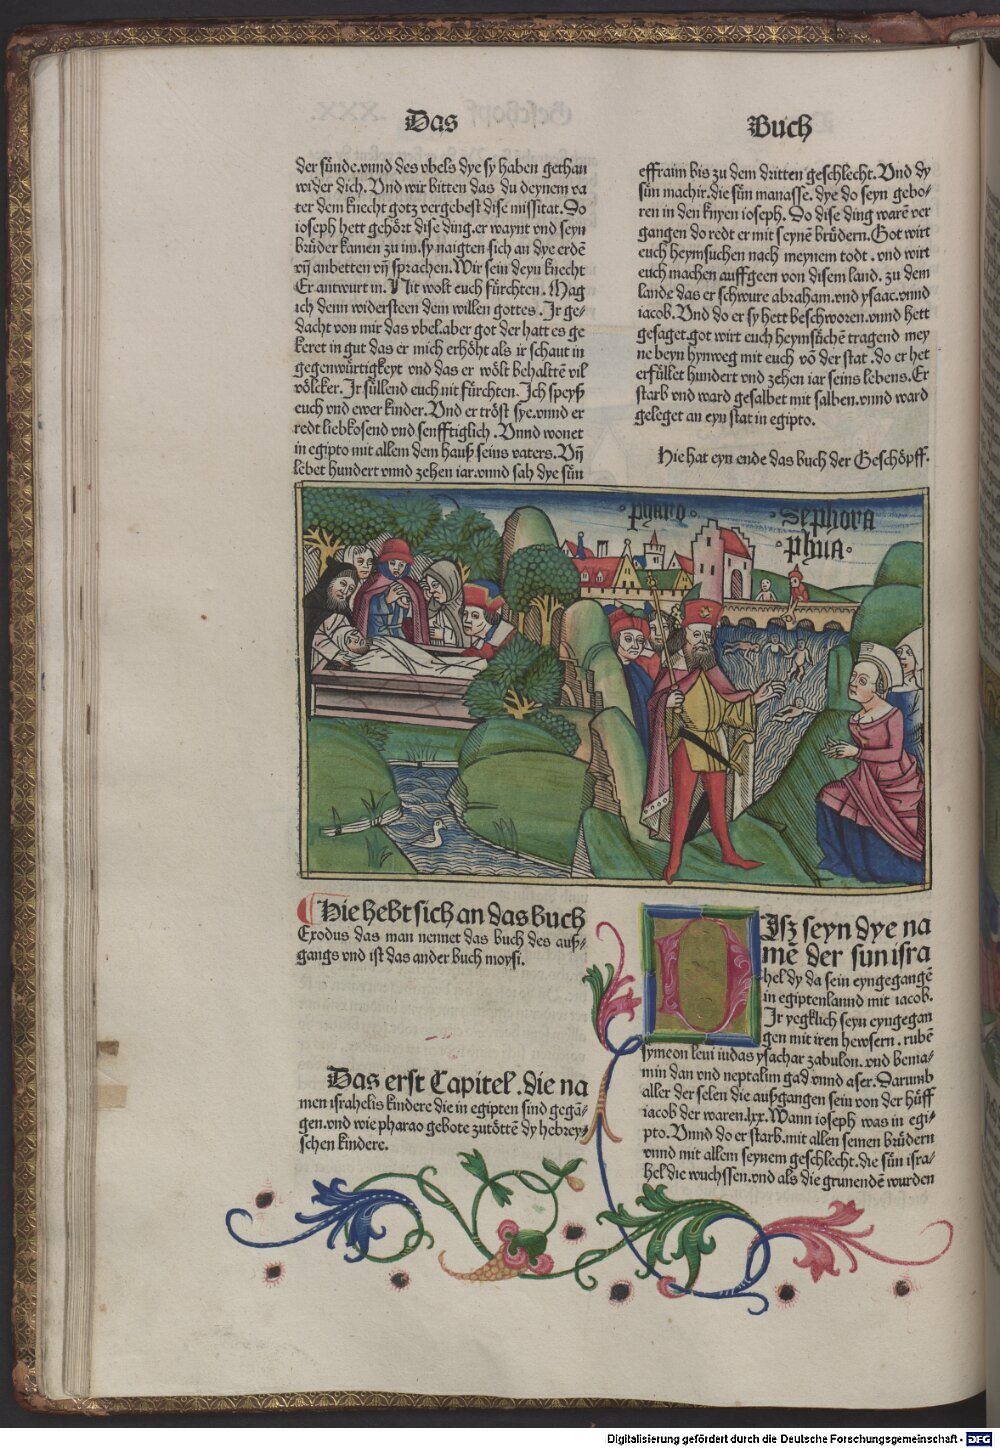 Das
Buch
der sünde.vnnd des vbels dye sy haben gethan
wider dich. Vnd wir bitten das du deynem va
ter dem knecht gotz vergebest dise missitat. Do
ioseph hett gehört dise ding.er waynt vnd seyn
brüder kamen zu im.sy naigten sich an dye erdē
vn̄ anbetten vn̄ sprachen.Wir sein deyn knecht
Er antwurt in. Nit wolt euch fürchten. Mag
ich denn widersteen dem willen gottes. Ir ge⸗
dacht von mir das vbel.aber got der hatt es ge
keret in gut das er mich erhöht als ir schaut in
gegenwürtigkeyt vnd das er wölt behalttē vil
völcker. Ir süllend euch nit fürchten. Ich speyß
euch vnd ewer kinder. Vnd er tröst sye.vnnd er
redt liebkosend vnd senfftiglich. Vnnd wonet
in egipto mit allem dem hauß seins vaters. Vn̄
lebet hundert vnnd zehen iar.vnnd sah dye sün
effraim bis zu dem dritten geschlecht. Vnd dy
sün machir.die sün manasse. dye do seyn gebo⸗
ren in den knyen ioseph. Do dise ding warē ver
gangen do redt er mit seynē brüdern.Got wirt
euch heymsuchen nach meynem todt. vnd wirt
euch machen auffgeen von disem land. zu dem
lande das er schwure abraham.vnd ysaac.vnnd
iacob. Vnd do er sy hett beschworen.vnnd hett
gesaget.got wirt euch heymsüchē tragend mey
ne beyn hynweg mit euch vō der stat. do er het
erfüllet hundert vnd zehen iar seins lebens. Er
starb vnd ward gesalbet mit salben.vnnd ward
geleget an eyn stat in egipto.
Hie hat eyn ende das buch der Geschöpff.
pharo
sephora
phua
Hie hebt sich an das buch
Exodus das man nennet das buch des auß⸗
gangs vnd ist das ander buch moysi.
Das erst Capitel. die na
men israhelis kindere die in egipten sind gegā⸗
gen.vnd wie pharao gebote zutöttē dy hebrey⸗
schen kindere.
DIsz seyn dye na
mē der sun isra
hel dy da sein eyngegangē
in egiptenlannd mit iacob.
Ir yegklich seyn eyngegan
gen mit iren hewsern. rubē
symeon leui iudas ysachar zabulon. vnd benia⸗
min dan vnd neptalim gad vnnd aser. Darumb
aller der selen die außgangen sein von der hüff
iacob der waren.lxx. Wann ioseph was in egi⸗
pto. Vnnd do er starb.mit allen seinen brüdern
vnnd mit allem seynem geschlecht.die sün isra⸗
hel die wuchssen.vnd als die grunendē wurden
Digitalisierung gefördert durch die Deutsche Forschungsgemeinschaft - DFG